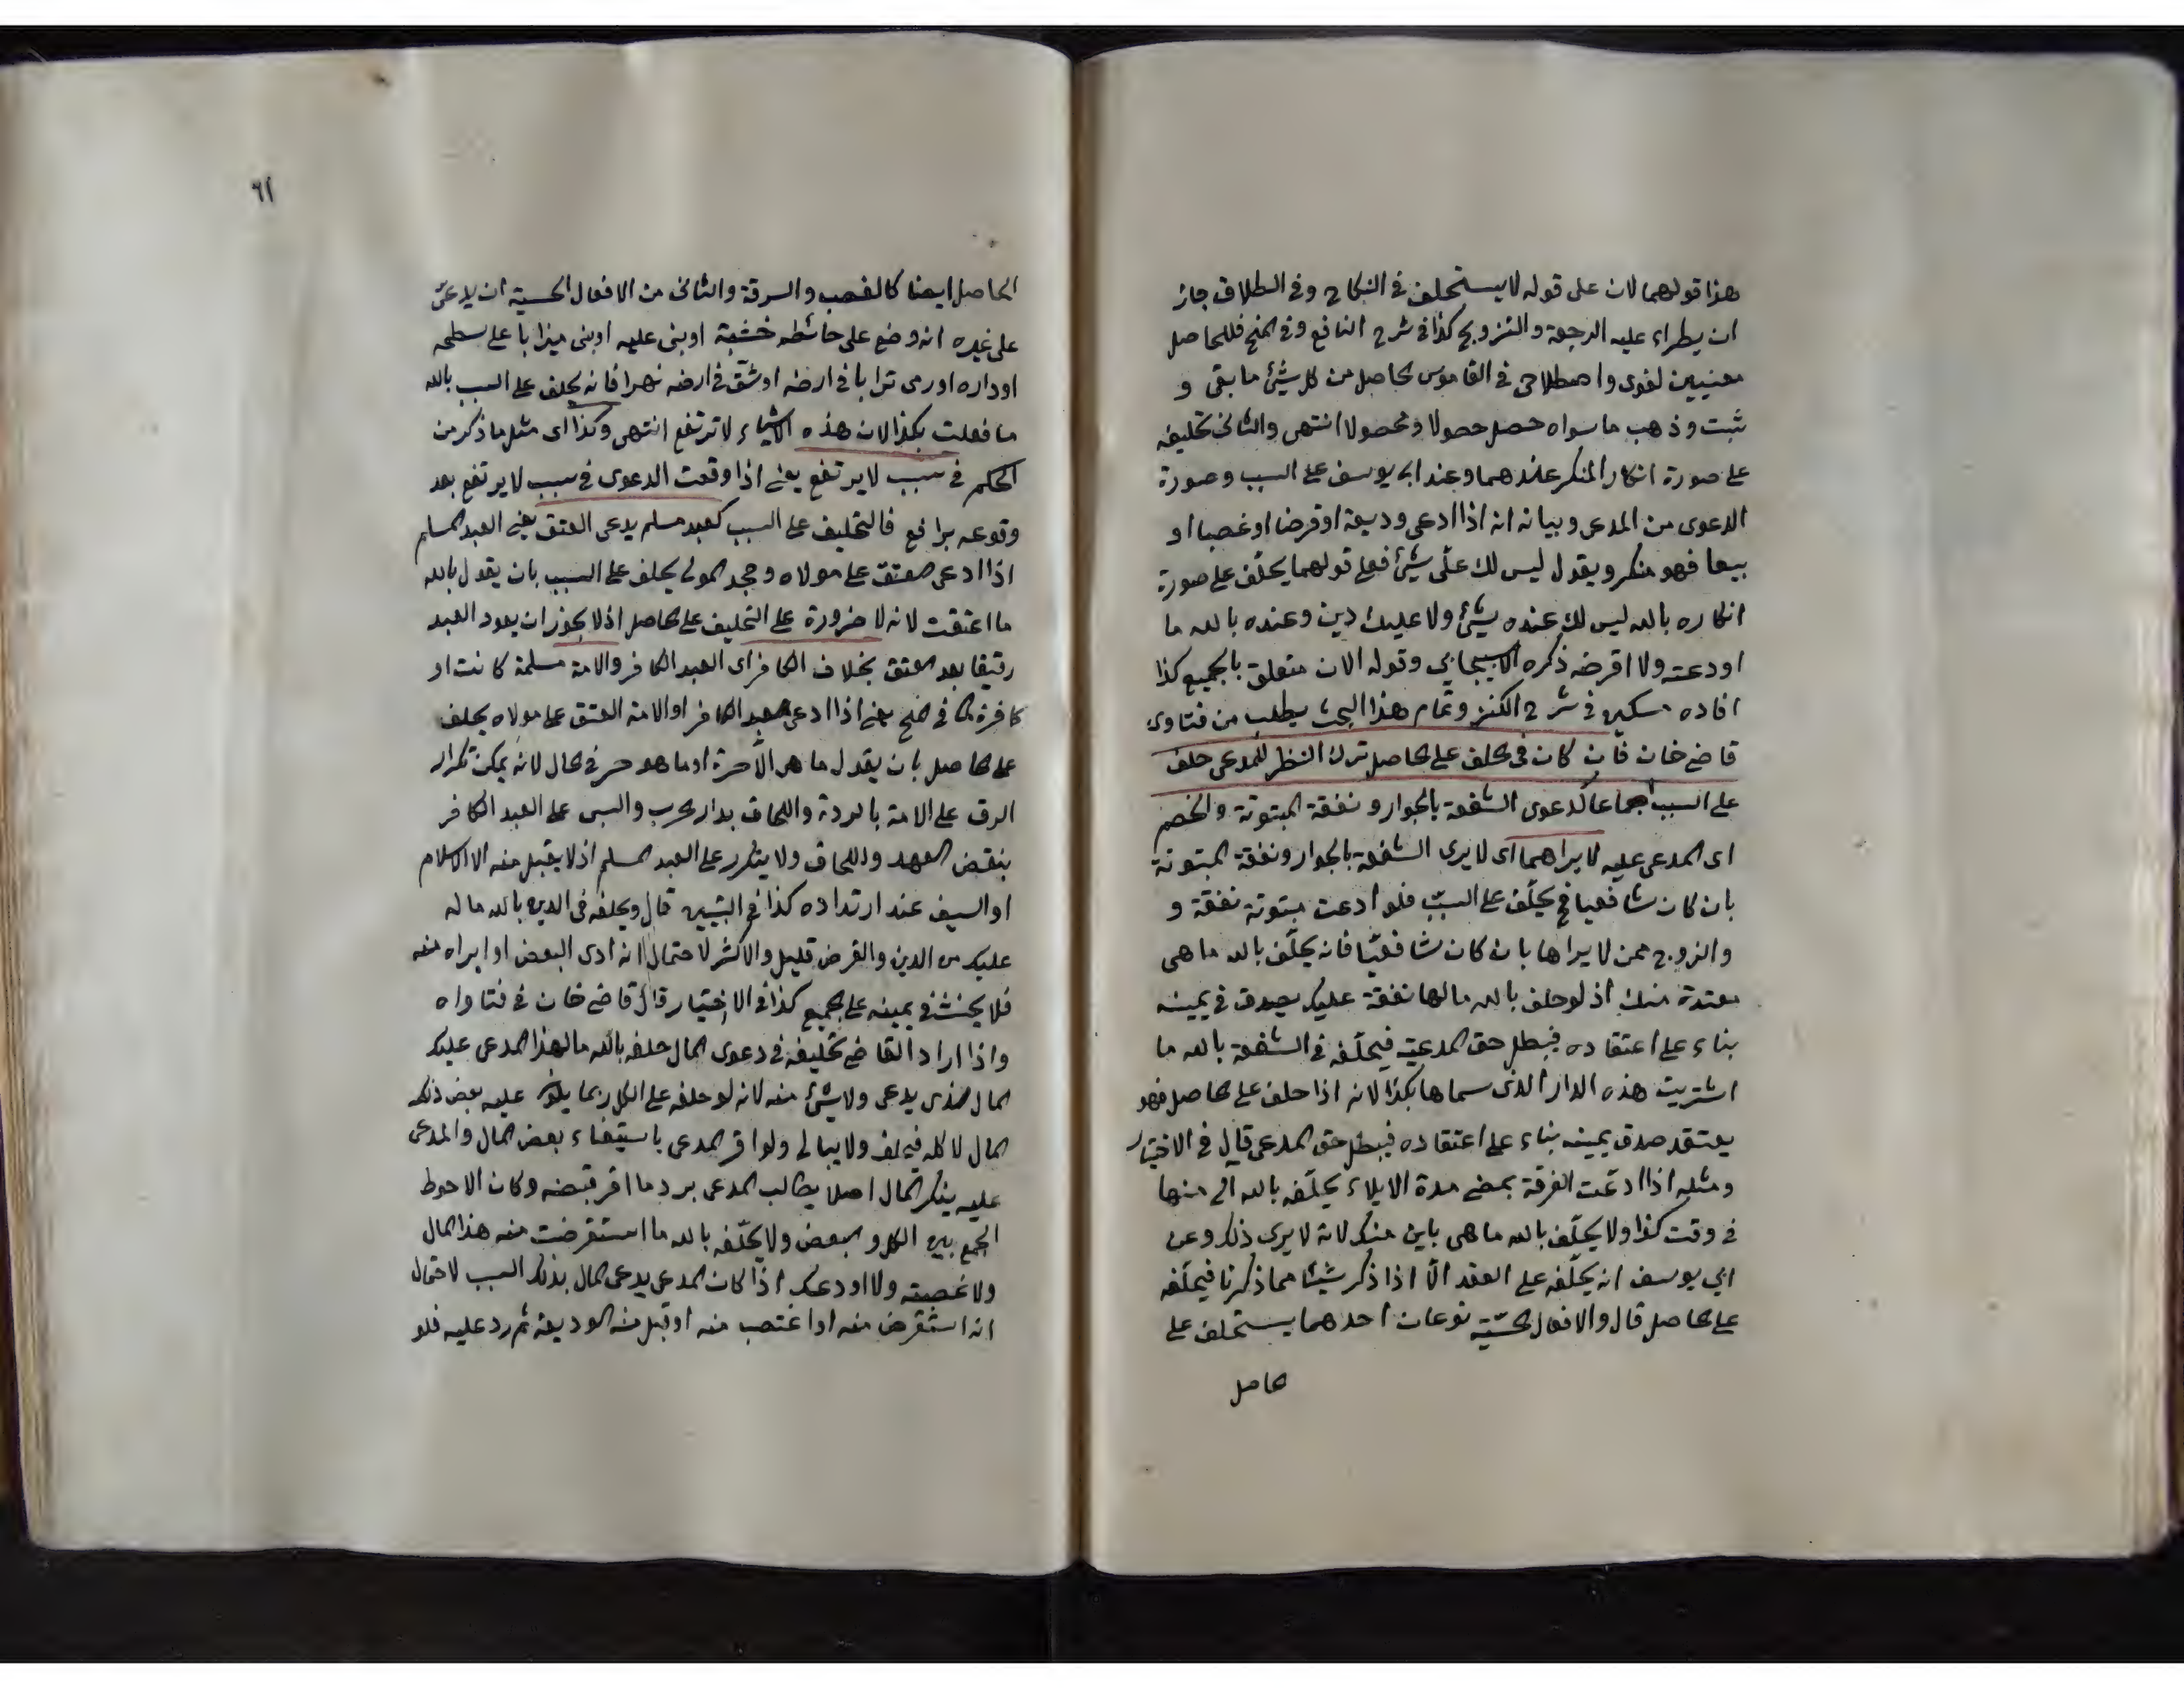 هذا قولهما لان على قوله لا يستحلف فى النكاح وفى الطلاق جاز
ان يطراء عليه الرجعة والتزويج كذا فى شرح النافع وفى المنح فللحاصل
معنيين لغوى واصطلاحى فى القاموس الحاصل من كل شئ ما بقى و
ثبت وذهب ما سواه حصل حصولا ومحصولا انتهى والثانى تحليفه
على صورة انكار المنكر عندهما وعند ابى يوسف على السبب وصورة
الدعوى من المدعى وبيانه انه اذا ادعى وديعة او قرضا او غصبا او
بيعا فهو منكر ويقول ليس لك علّى شئ فعلى قولهما يحلّف على صورة
انكاره بالله ليس لك عنده شئ ولا عليك دين وعنده بالله ما
اودعته ولا اقرضه ذكره الاسبيجابي وقوله الان متعلق بالجميع كذا
افاده مسكين فى شرح الكنز وتمام هذا البحث يطلب من فتاوى
قاضى خان فان كان فى الحلف على الحاصل ترك النظر للمدعى حلف
على السبب اجماعا كدعوى الشفعة بالجوار ونفقة المبتوتة والخصم
اى المدعى عليه لا يراهما اى لا يرى الشفعة بالجوار ونفقة المبتوتة
بان كان شافعيا فح يحلّف على السبب فلو ادعت مبتوتة نفقة و
والزوج ممن لا يراها بان كان شافعيّا فانه يحلّف بالله ما هى
معتدة منك اذ لو حلف بالله ما لها نفقة عليك يصدق فى يمينه
بناء على اعتقاده فيبطل حق المدعيّة فيحلّف فى الشفعة بالله ما
اشتريت هذه الدار الذى سماها بكذا لانه اذا حلف على الحاصل فهو
يعتقد صدق يمينه بناء على اعتقاده فيبطل حق المدعى قال فى الاختيار
ومثله اذا ادعّت الفرقة بمضى مدة الايلاء يحلّفه بالله الى منها
فى وقت كذا ولا يحلّف بالله ما هى باين منك لانه لا يرى ذلك وعن
ابي يوسف انه يحلّفه على العقد الّا اذا ذكر شيئا مما ذكرنا فيحلّفه
على الحاصل قال والافعال الحسّية نوعان احدهما يستحلف على
الحاصل
٦١
الحاصل ايضا كالغصب والسرقة والثانى من الافعال الحسية ان يدعىّ
على غيره انه وضع على حائطه خشبة او بنى عليه او بنى ميزابا على سطحه
او داره او رمى ترابا فى ارضه او شّق فى ارضه نهرا فانه يحلف على السبب بالله
ما فعلت بكذا لان هذه الاشياء لا ترتفع انتهى وكذا اى مثل ما ذكر من
الحكم فى سبب لا يرتفع يعنى اذا وقعت الدعوى فى سبب لا يرتفع بعد
وقوعه برافع فالتحليف على السبب كعبد مسلم يدعى العتق يعنى العبد المسلم
اذا ادعى العتق على مولاه وجحد المولى يحلف على السبب بان يقول بالله
ما اعتقت لانه لا ضرورة على التحليف على الحاصل اذ لا يجوز ان يعود العبد
رقيقا بعد العتق بخلاف الكافر اى العبد الكافر والامة مسلمة كانت او
كافرة كما فى المنح يعنى اذا ادعى العبد الكافر او الامة العتق على مولاه يحلف
على الحاصل بان يقول ما هى الّا حرة او ما هو حر فى الحال لانه يمكن تكرار
الرق على الامة بالردة واللحاق بدار الحرب والسبى على العبد الكافر
بنقض العهد واللحاق ولا يتكرر على العبد المسلم اذ لا يقبل منه الا الاسلام
او السيف عند ارتداده كذا فى التبيين قال ويحلفه فى الدين بالله ما له
عليك من الدين والقرض قليل والاكثر لاحتمال انه ادى البعض او ابراه منه
فلا يحنث فى يمينه على الجميع كذا فى الاختيار قال قاضى خان فى فتاواه
واذا اراد القاضى تحليفه فى دعوى المال حلفه بالله ما لهذا المدعى عليك
المال الذى يدعى ولا شئ منه لانه لو حلفه على الكل ربما عليه بعض ذلك
المال لا كله فيحلف ولا يبالى ولو اقر المدعى باستيفاء بعض المال والمدعى
عليه ينكر المال اصلا يطالب المدعى برد ما اقر قبضه وكان الاحوط
الجمع بين الكل والبعض ولا يحلّفه بالله ما استقرضت منه هذا المال
ولا غصبته ولا اودعك اذا كان المدعى يدعى المال بذلك السبب لاحتمال
انه استقرض منه او اغتصب منه او قبل منه الوديعة ثم رد عليه فلو